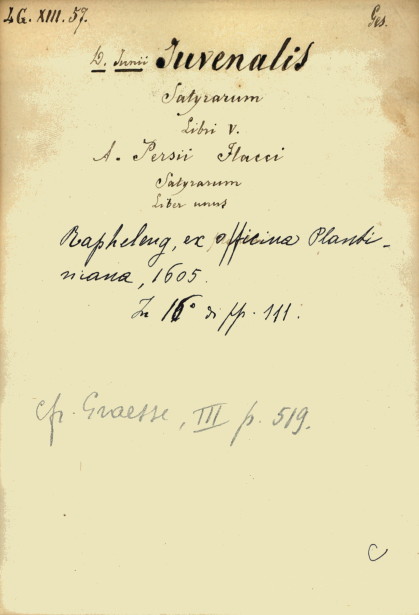 LG. XIII. 57. Ges.
D. Junii Juvenalis
Satyrarum
Libri V.
A. Persii Flacci
Satyrarum
Liber unus
Rapheleng, ex officina Planti-
niana, 1605.
In 16° di pp. 111.
cfr. Graesse, III p. 519.
C